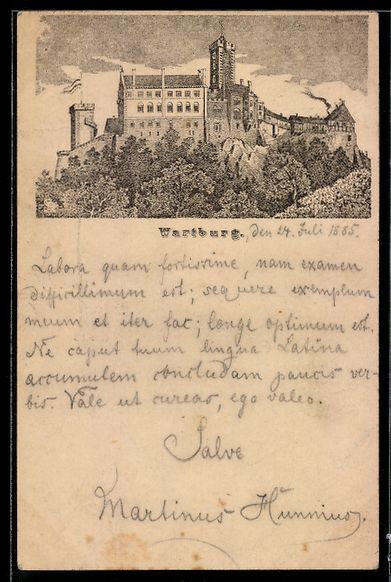 Wartburg., den 24. Juli 1885.
Labora quam fortissime, nam examen
difficillimum est; sequere exemplum
meum et iter fac; longe optimum est.
Ne caput tuum lingua Latina
accumulem concludam paucis ver-
bis. Vale ut cureas, ego valeo.
Salve
Martinus Hunnius.